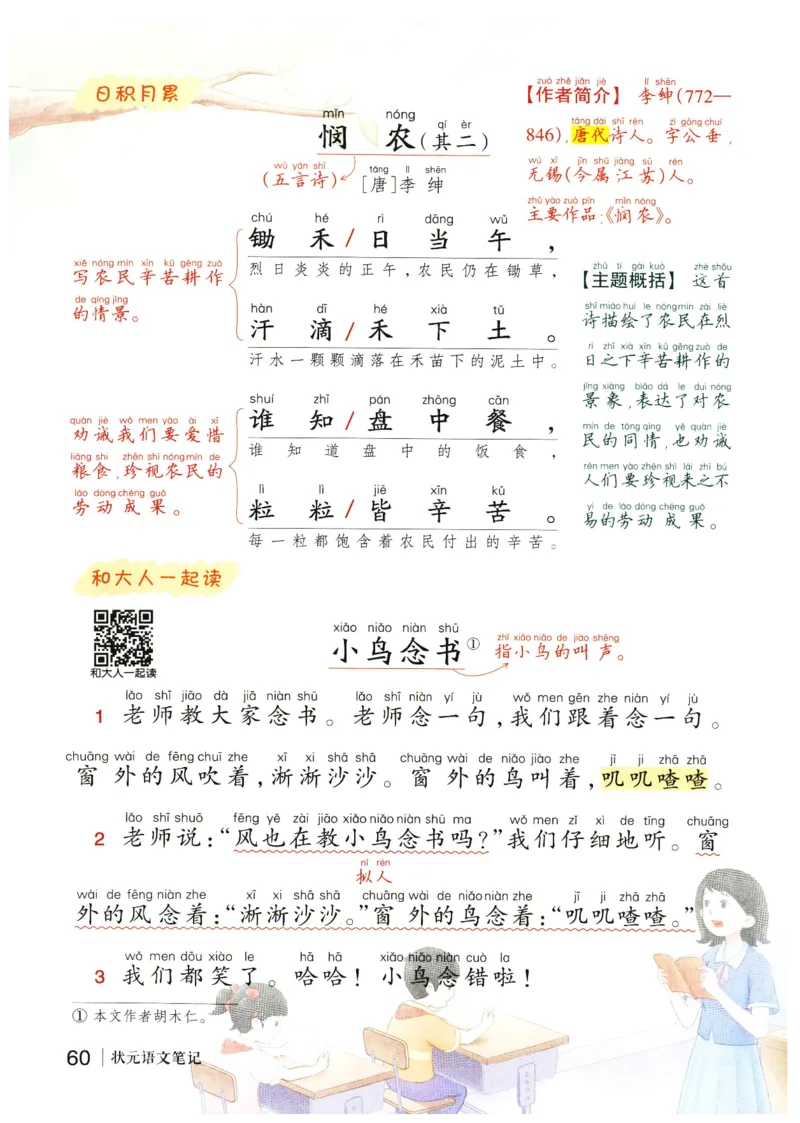 日积月累
mǐn nóng qí èr
悯 农(其二)
wǔ yán shī
(五言诗)
táng lǐ shēn
[唐]李 绅
zuò zhě jiǎn jiè lǐ shēn
【作者简介】 李绅(772—
táng dài shī rén zì gōng chuí
846),唐代诗人。字公垂,
wú xī jīn shǔ jiāng sū rén
无锡(今属江苏)人。
zhǔ yào zuò pǐn mǐn nóng
主要作品:《悯农》。
chú hé rì dāng wǔ
锄 禾/日 当 午 ,
烈日炎炎的正午,农民仍在锄草,
hàn dī hé xià tǔ
汗 滴/禾 下 土 。
汗水一颗颗滴落在禾苗下的泥土中。
xiě nóng mín xīn kǔ gēng zuò
写农民辛苦耕作
de qíng jǐng
的情景。
shuí zhī pán zhōng cān
谁 知/盘 中 餐 ,
谁 知 道 盘 中 的 饭 食 ,
lì lì jiē xīn kǔ
粒 粒/皆 辛 苦 。
每一粒都饱含着农民付出的辛苦。
quàn jiè wǒ men yào ài xī
劝诫我们要爱惜
liáng shi zhēn shì nóng mín de
粮食,珍视农民的
láo dòng chéng guǒ
劳动成果。
zhǔ tí gài kuò zhè shǒu
【主题概括】 这首
shī miáo huì le nóng mín zài liè
诗描绘了农民在烈
rì zhī xià xīn kǔ gēng zuò de
日之下辛苦耕作的
jǐng xiàng biǎo dá le duì nóng
景象,表达了对农
mín de tóng qíng yě quàn jiè
民的同情,也劝诫
rén men yào zhēn shì lái zhī bú
人们要珍视来之不
yì de láo dòng chéng guǒ
易的劳动成果。
和大人一起读
和大人一起读
xiǎo niǎo niàn shū
小鸟念书①
zhǐ xiǎo niǎo de jiào shēng
指小鸟的叫声。
lǎo shī jiāo dà jiā niàn shū lǎo shī niàn yí jù wǒ men gēn zhe niàn yí jù
1 老师教大家念书。老师念一句,我们跟着念一句。
chuāng wài de fēng chuī zhe xī xi shā shā chuāng wài de niǎo jiào zhe jī ji zhā zhā
窗外的风吹着,淅淅沙沙。窗外的鸟叫着,叽叽喳喳。
lǎo shī shuō fēng yě zài jiāo xiǎo niǎo niàn shū ma wǒ men zǐ xì de tīng chuāng
2 老师说:“风也在教小鸟念书吗?”我们仔细地听。窗
nǐ rén
拟人
wài de fēng niàn zhe xī xi shā shā chuāng wài de niǎo niàn zhe jī ji zhā zhā
外的风念着:“淅淅沙沙。”窗外的鸟念着:“叽叽喳喳。”
wǒ men dōu xiào le hā hā xiǎo niǎo niàn cuò la
3 我们都笑了。哈哈!小鸟念错啦!
① 本文作者胡木仁。
60 状元语文笔记